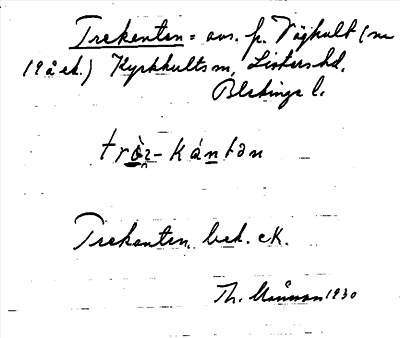 Trekanten = avs. p. Väghult (nr
19 å ek.) Kyrkhults sn, Listers hd,
Blekinge l.
tròz-kántan
Trekanten, bed. eK.
Th. Månsson 1930